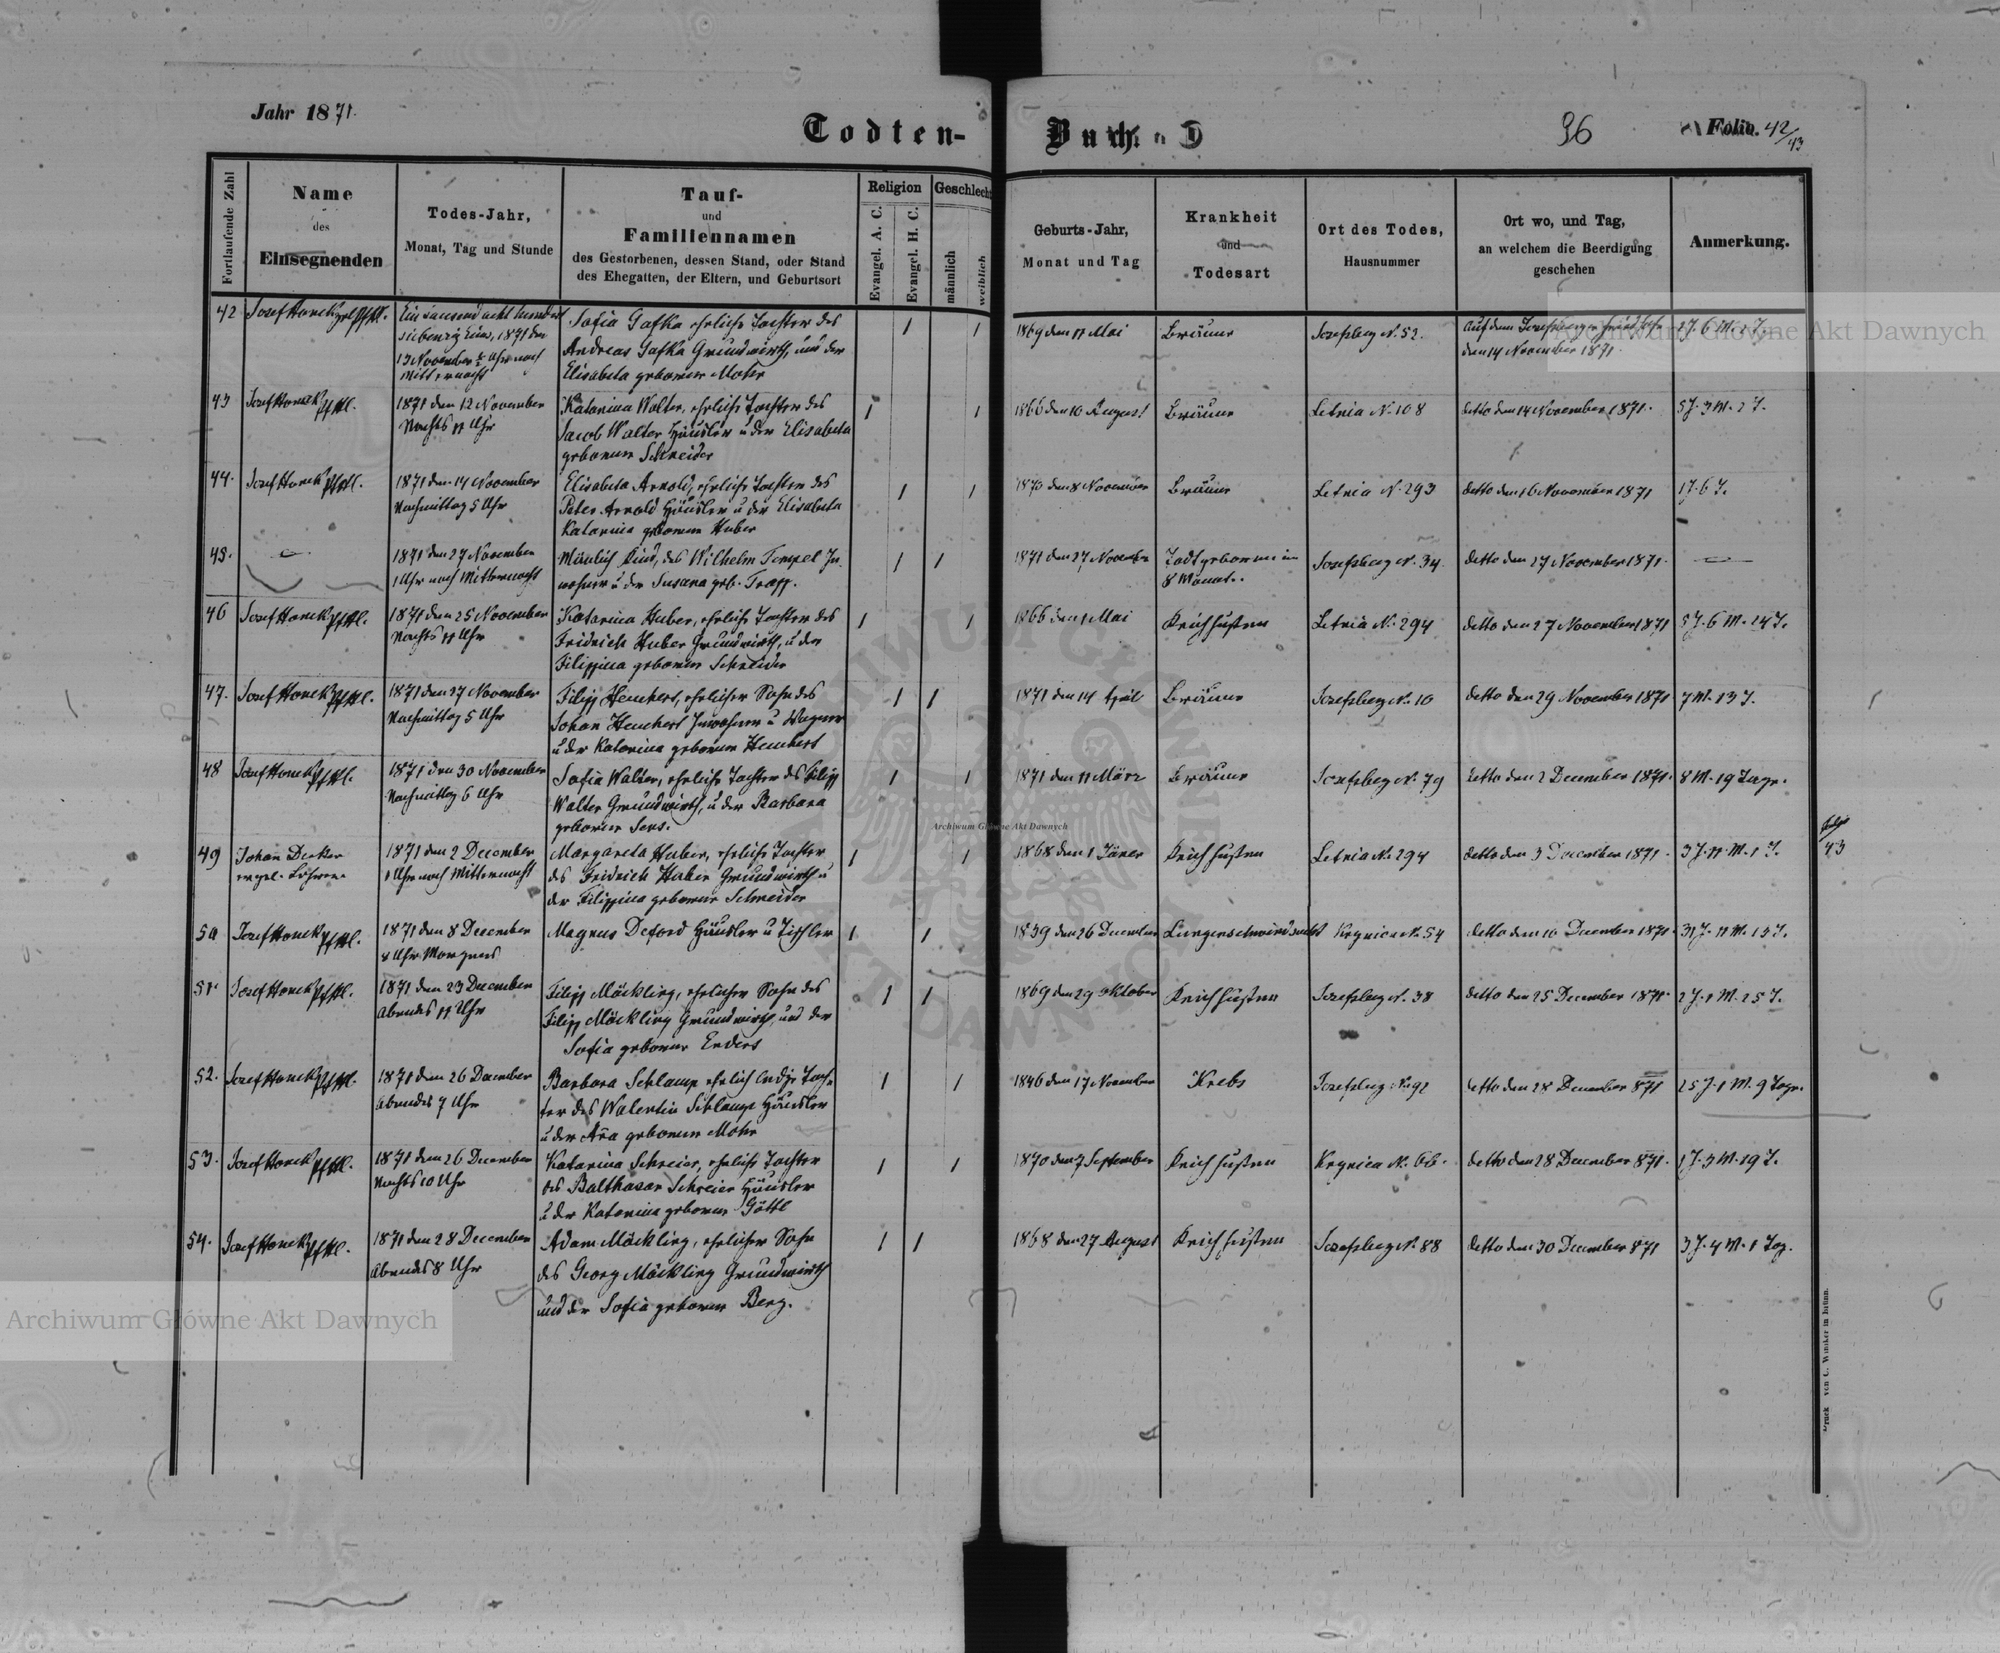 Jahr 1871.
Todten-Buch.
96
Folio. 42/43
Fortlaufende Zahl
Name
des
Einsegnenden
Todes-Jahr,
Monat, Tag und Stunde
Tauf-
und
Familiennamen
des Gestorbenen, dessen Stand, oder Stand
des Ehegatten, der Eltern, und Geburtsort
Religion
Evangel. A. C.
Evangel. H. C.
Geschlecht
männlich
weiblich
Geburts-Jahr,
Monat und Tag
Krankheit
und
Todesart
Ort des Todes,
Hausnummer
Ort wo, und Tag,
an welchem die Beerdigung
geschehen
Anmerkung.
42 Josef Honek
Ein tausend acht hundert
siebenzig Eins, 1871 den
13 November Uhr nach
Mitternacht
Sofia Gafka eheliche Tochter des
Andreas Gafka Grundwirth, und der
Elisabeta geborene Mohr
1869 den 11 Mai
Bräune
Josefsberg N. 52.
Auf dem Josefsberger Friedhofe
den 14 November 1871.
2 J. 6 M. 2 T.
43 Josef Honek
1871 den 12 November
Nachts 11 Uhr
Katarina Walter, eheliche Tochter des
Jacob Walter Häusler u der Elisabeta
geborenen Schneider
1866 den 10 August
Bräune
Letnia N. 108
detto den 14 November 1871.
5 J. 3 M. 2 T.
44. Josef Honek
1871 den 14 November
Nachmittag 5 Uhr
Elisabeta Arnold, eheliche Tochter des
Peter Arnold Häusler u der Elisabeta
Katarina geborenen Huber
1870 den 8 November
Bräune
Letnia N. 293
detto den 16 November 1871
1 J. 6 T.
45.
1871 den 27 November
1 Uhr nach Mitternacht
Mänlich Kind, des Wilhelm Tempel In
wohner u der Susana geb. Tropp.
1871 den 27 November
Todtgeboren im
8 Monat.
Josefsberg N. 34
detto den 27 November 1871.
46 Josef Honek
1871 den 25 November
Nachts 11 Uhr
Katarina Huber, eheliche Tochter des
Fridrich Huber Grundwirth, u der
Filippina geborene Schneider
1866 den 1 Mai
Keichhusten
Letnia N. 294
detto den 27 November 1871
5 J. 6 M. 24 T.
47. Josef Honek
1871 den 27 November
Nachmittag 5 Uhr
Filipp Henchert, ehelicher Sohn des
Johan Henchert Inwohner u Wagner
u der Katarina geborenen Henchert
1871 den 14 April
Bräune
Josefsberg N. 10
detto den 29 November 1871
7 M. 13 T.
48 Josef Honek
1871 den 30 November
Nachmittag 6 Uhr
Sofia Walter, eheliche Tochter des Filipp
Walter Grundwirth, u der Barbara
geborene Sens.
1871 den 11 März
Bräune
Josefsberg N. 79
detto den 2 December 1871.
8 M. 19 Tage.
49 Johan Decker
evgel. Lehrer
1871 den 2 December
1 Uhr nach Mitternacht
Margareta Huber, eheliche Tochter
des Fridrich Huber Grundwirth u
der Filippina geborene Schneider
1868 den 1 Jäner
Keichhusten
Letnia N. 294
detto den 3 December 1871.
3 J. 11 M. 1 T.
Folio
43
50 Josef Honek
1871 den 8 December
8 Uhr Morgens
Magnus Deford Häusler u Tischler
1839 den 26 December
Lungenschwindsucht
Krynica N. 54
detto den 10 December 1871.
31 J. 11 M. 13 T.
51. Josef Honek
1871 den 23 December
Abends 11 Uhr
Filipp Möckling, ehelicher Sohn des
Filipp Möckling Grundwirth, und der
Sofia geborene Enders
1869 den 29 Oktober
Keichhusten
Josefsberg N. 38
detto den 25 December 1871.
2 J. 1 M. 25 T.
52. Josef Honek
1871 den 26 December
Abends 7 Uhr
Barbara Schlamp ehelich ledige Toch
ter des Walentin Schlamp Häusler
u der Ana geborenen Mohr
1846 den 17 November
Krebs
Josefsberg N. 92
detto den 28 December 871
25 J. 1 M. 9 Tage.
53. Josef Honek
1871 den 26 December
Nachts 10 Uhr
Katarina Schreier, eheliche Tochter
des Balthasar Schreier Häusler
u der Katarina geborene Göttl
1870 den 7 September
Keichhusten
Krynica N. 66.
detto den 28 December 871.
1 J. 3 M. 19 T.
54. Josef Honek
1871 den 28 December
Abends 8 Uhr
Adam Möckling, ehelicher Sohn
des Georg Möckling Grundwirth
und der Sofia geborene Berg.
1868 den 27 August
Keichhusten
Josefsberg N. 88
detto den 30 December 871
3 J. 4 M. 1 Tag.
Druck von C. Winiker in Brünn.
Archiwum Główne Akt Dawnych
Archiwum Główne Akt Dawnych
Archiwum Główne Akt Dawnych
ARCHIWUM GŁÓWNE AKT DAWNYCH